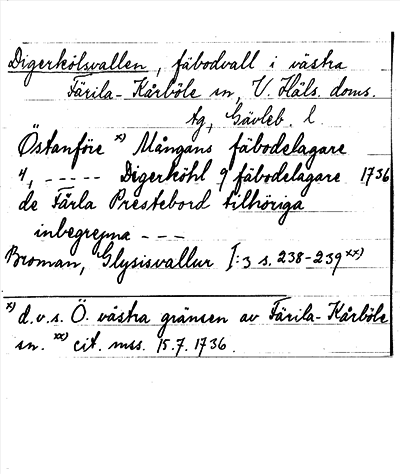 Digerkölsvallen, fäbodvall i västra
Färila-Kårböle sn, V. Häls. doms.
tg, Gävleb. l.
Östanföre x) Mångans fäbodelagare
4, ----- Digerköhl 9 fäbodelagare 1736
de Färla Prestebord tilhöriga
inbegrepna ---
Broman, Glysisvallur I:3 s. 238-239 xx)
x) d.v.s. Ö. västra gränsen av Färila-Kårböle
sn. xx) cit. mss. 15.7.1736.